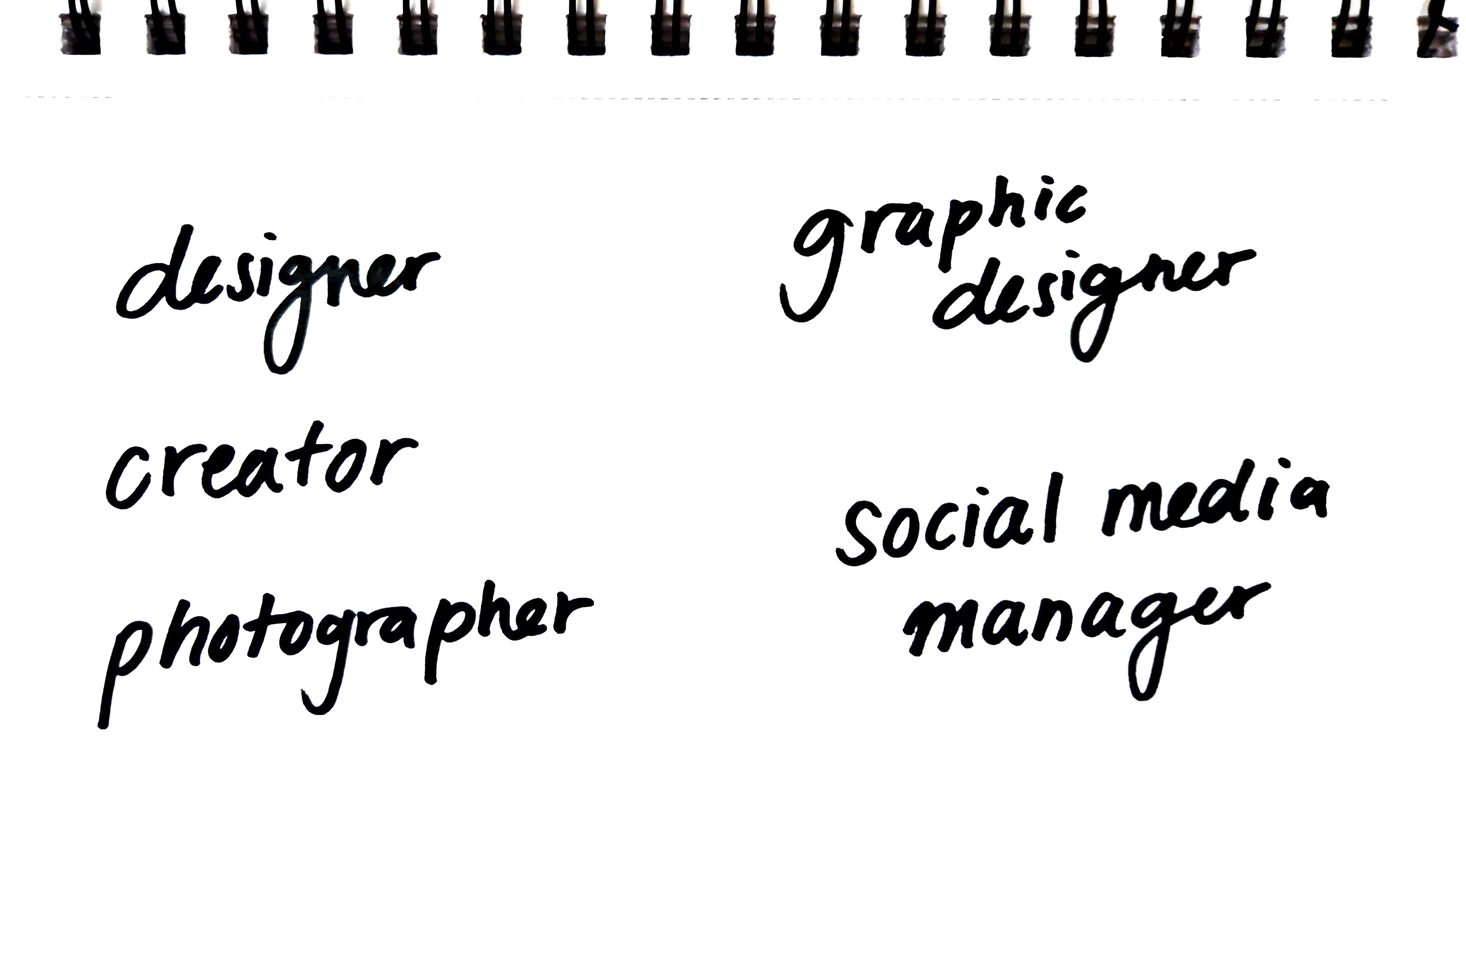 designer
creator
photographer
graphic
designer
social media
manager